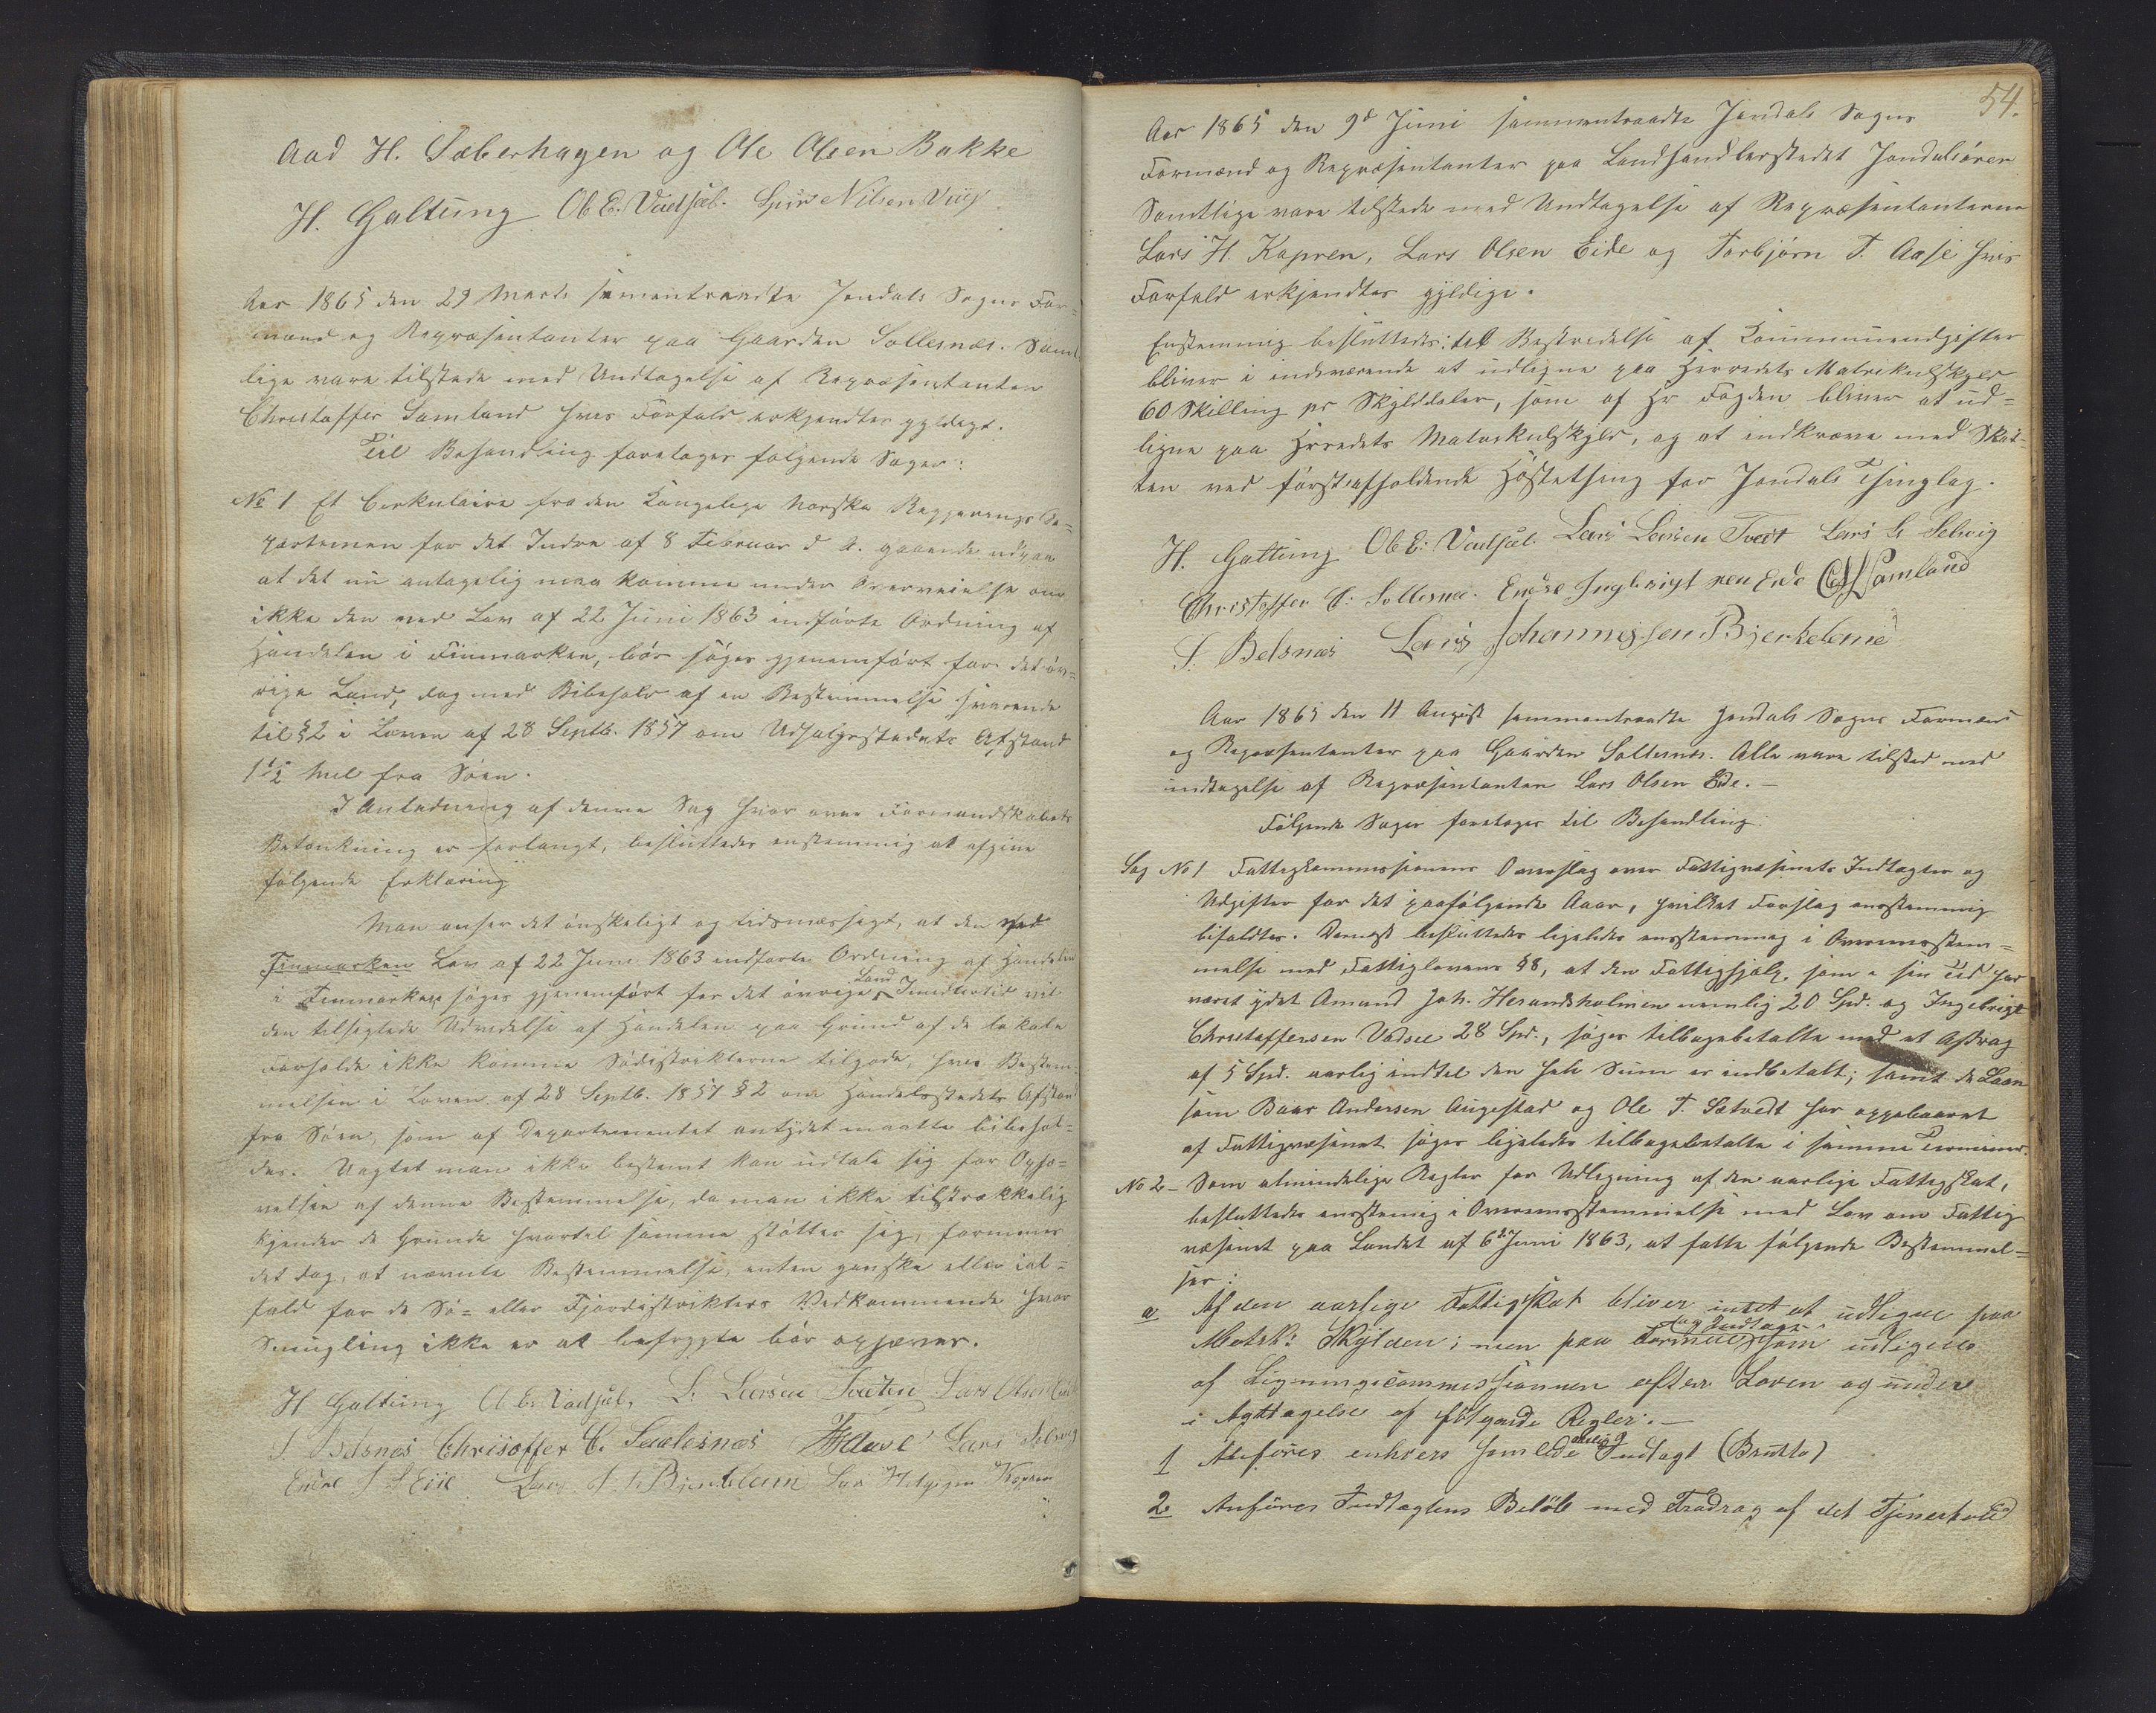 Aad H. Sæberhagen og Ole Olsen Bakke
H. Galtung Ol E. Vadsæl. Nilsen
Aar 1865 den 29 Marts samentraadte Jondals Sogns For=
mænd og Repræsentanter paa Gaarden Sollesnæs. Samt
lige vare tilstede med Undtagelse af Repræsentanten
Christoffer Samland hvis Forfald erkjendtes gyldigt.
Til Behandling foretages følgende Sager:
No 1 Et Cirkulaire fra den Kongelige norske Regjerings De=
partemen for det Indre af 8 Februar d A. gaaende ud paa
at det nu antagelig maa komme under Overveielse om
ikke den ved Lov af 22 Juni 1863 indførte Ordning af
Handelen i Finmarken, bør søges gjenemført for det øv=
rige Land, dog med Bibehold af en Bestemmelse svarende
til §2 i Loven af 28 Septb. 1857 om Udsalgsstedets Afstand
1½ Miil fra Søen.
I Anledning af denne Sag hvor over Formandskabets
Betænkning er forlangt, besluttedes enstemmig at afgive
følgende Erklæring
Man anser det ønskeligt og tidsmæssigt, at den ved
Finmarken Lov af 22 Juni 1863 indførte Ordning af Handelen
i Finmarken søges gjenemført for det øvrige Land Imidlertid vil
den tilsigtede Udvidelse af Handelen paa Grund af de lokale
Forholde ikke komme Sødistrikterne tilgode, hvis Bestem=
melsen i Loven af 28 Septb. 1857 §2 om Handelsstedets Afstand
fra Søen, som af Departementet antydet maatte bibehol=
des. Uagtet man ikke bestemt kan udtale sig for Ophæ=
velsen af denne Bestemmelse, da man ikke tilstrækkelig
kjender de Grunde hvortil samme støtter sig, formenes
det dog, at nævnte Bestemmelse, enten ganske eller ial=
fald for de Sø= eller Fjordistrikters Vedkommende hvor
Smugling ikke er at befrygte bør ophæves.
H Galtung Ol E. Vadsæl, L. Larsen Tveten Lars Olsen Eide
S. Belsnæs Chrisoffer C. Saalesnæs Lars Selvig
Endre I Eiie Lars J. Bjerkelein Lars Helgesen Kapren
54.
Aar 1865 den 9d Juni sammentraadte Jondals Sogns
Formænd og Repræsentanter paa Landhandlerstedet Jondalsøren
Samtlige vare tilstede med Undtagelse af Repræsentanterne
Lars H. Kapren, Lars Olsen Eide og Torbjørn T. Aase hvis
Forfald erkjendtes gyldige.
Enstemmig besluttedes: til Bestridelse af Kommuneudgifter
bliver i indeværende at udligne paa Herredets Matrikulskyld
60 Skilling pr Skylddaler, som af Hr Fogden bliver at ud=
ligne paa Herredets Matrikulskyld, og at indkræve med Skat=
ten ved førstafholdende Høstething for Jondals Thinglag.
H. Galtung Ol E: Vadsæl. Lars Larsen Tvedt Lars L Selvig
Christoffer C: Sollesnæs. Endre Ingbrigtsen Eide Samland
S. Belsnæs Lars Johannessen Bjerkeleine
Aar 1865 den 11 August sammentraadte Jondals Sogns Formænd
og Repræsentanter paa Gaarden Sollesnæs. Alle vare tilsted med
undtagelse af Repræsentanten Lars Olsen Eide. —
Følgende Sager foretages til Behandling
Sag No 1 Fattigkommissionens Overslag over Fattigvæsenets Indtægter og
Udgifter for det paafølgende Aar, hvilket Forslag enstemmig
bifaldtes. Dernæst besluttedes ligeledes enstemmig i Overensstem=
melse med Fattiglovens §8, at den Fattighjælp, som i sin Tid har
været ydet Amund Joh. Herandsholmen nemlig 20 Spd. og Ingebrigt
Christoffersen Vadsel 28 Spd., søges tilbagebetalte med et Afdrag
af 5 Spd. aarlig indtil den hele Sum er indbetalt; samt de Laan
som Baar Andersen Augestad og Ole T. Sætvedt har oppebaaret
af Fattigvæsenet søges ligeledes tilbagebetalte i samme Terminer.
No 2 – Som almindelige Regler for Udligning af den aarlige Fattigskat,
besluttedes enstemig i Overensstemmelse med Lov om Fattig
væsenet paa Landet af 6te Juni 1863, at fatte følgende Bestemmel=
ser:
a Af den aarlige Fattigskat bliver intet at udligne paa
Matrk: Skylden; men paa Formue og Indtægt som udlignes
af Ligningscommissionen efter Loven og under
i Agttagelse af følgende Regler. —
1 Anføres enhvers samlede aarlig Indtægt (Brutto)
2 Anføres Indtægtens Beløb med Fradrag af det Tjenerhold